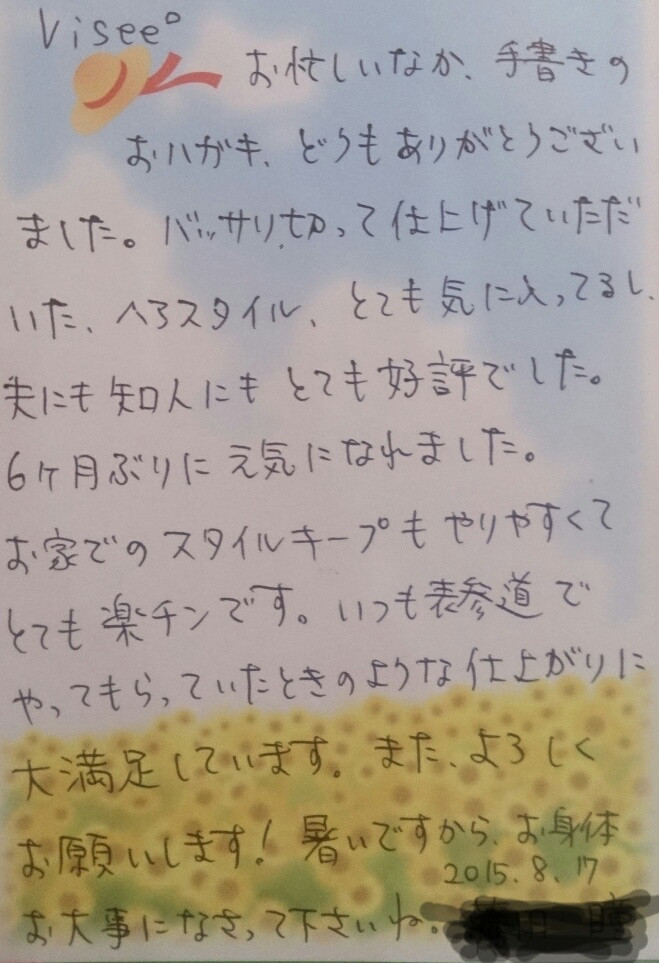 Visee°
お忙しいなか、手書きの
おハガキ、どうもありがとうござい
ました。バッサリ切って仕上げていただ
いた、ヘアスタイル、とても気に入ってるし、
夫にも知人にもとても好評でした。
6ヶ月ぶりに元気になれました。
お家でのスタイルキープもやりやすくて
とても楽チンです。いつも表参道で
やってもらっていたときのような仕上がりに
大満足しています。また、よろしく
お願いします！暑いですから、お身体
2015.8.17
お大事になさって下さいね。